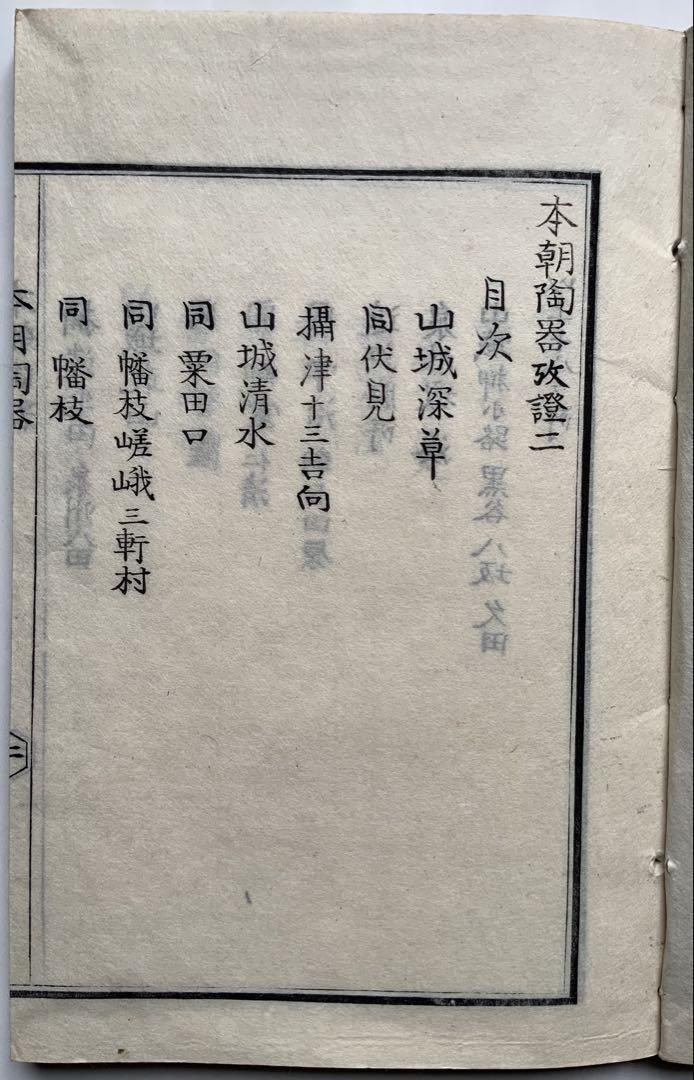 本朝陶器攷證二
目次
山城深草
同伏見
攝津十三吉向
山城清水
同 粟田口
同 幡枝嵯峨三軒村
同 幡枝
本朝陶器
二